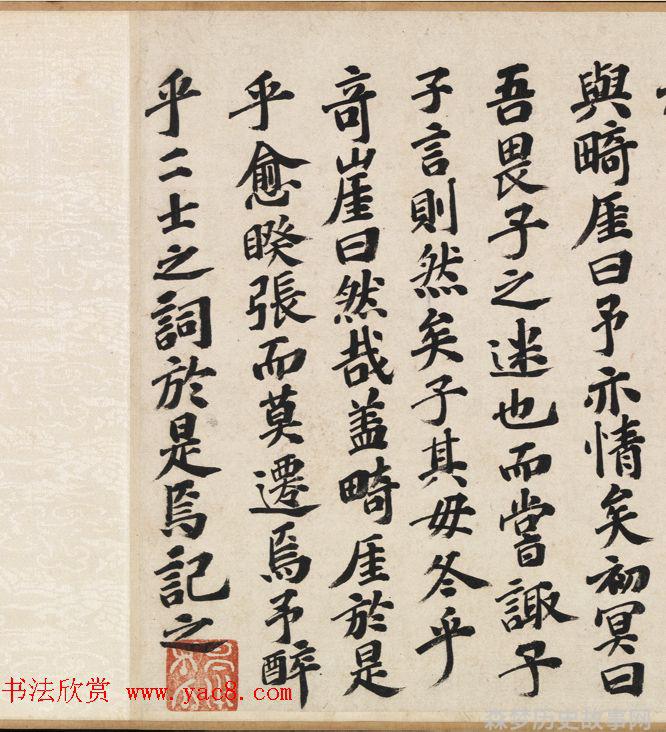 與畸厓曰予亦情矣初冥曰
吾畏子之迷也而嘗諏子
子言則然矣子其毋冬乎
奇崖曰然哉盖畸厓於是
乎愈睽張而莫遷焉予醉
乎二士之詞於是焉記之
书法欣赏 www.yac8.com
森梦历史故事网